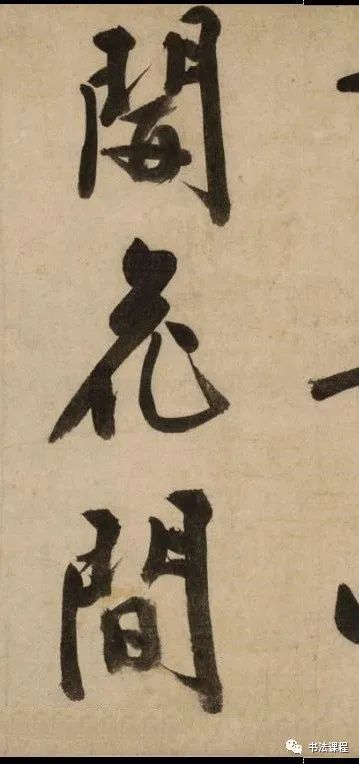 開花間
书法课程